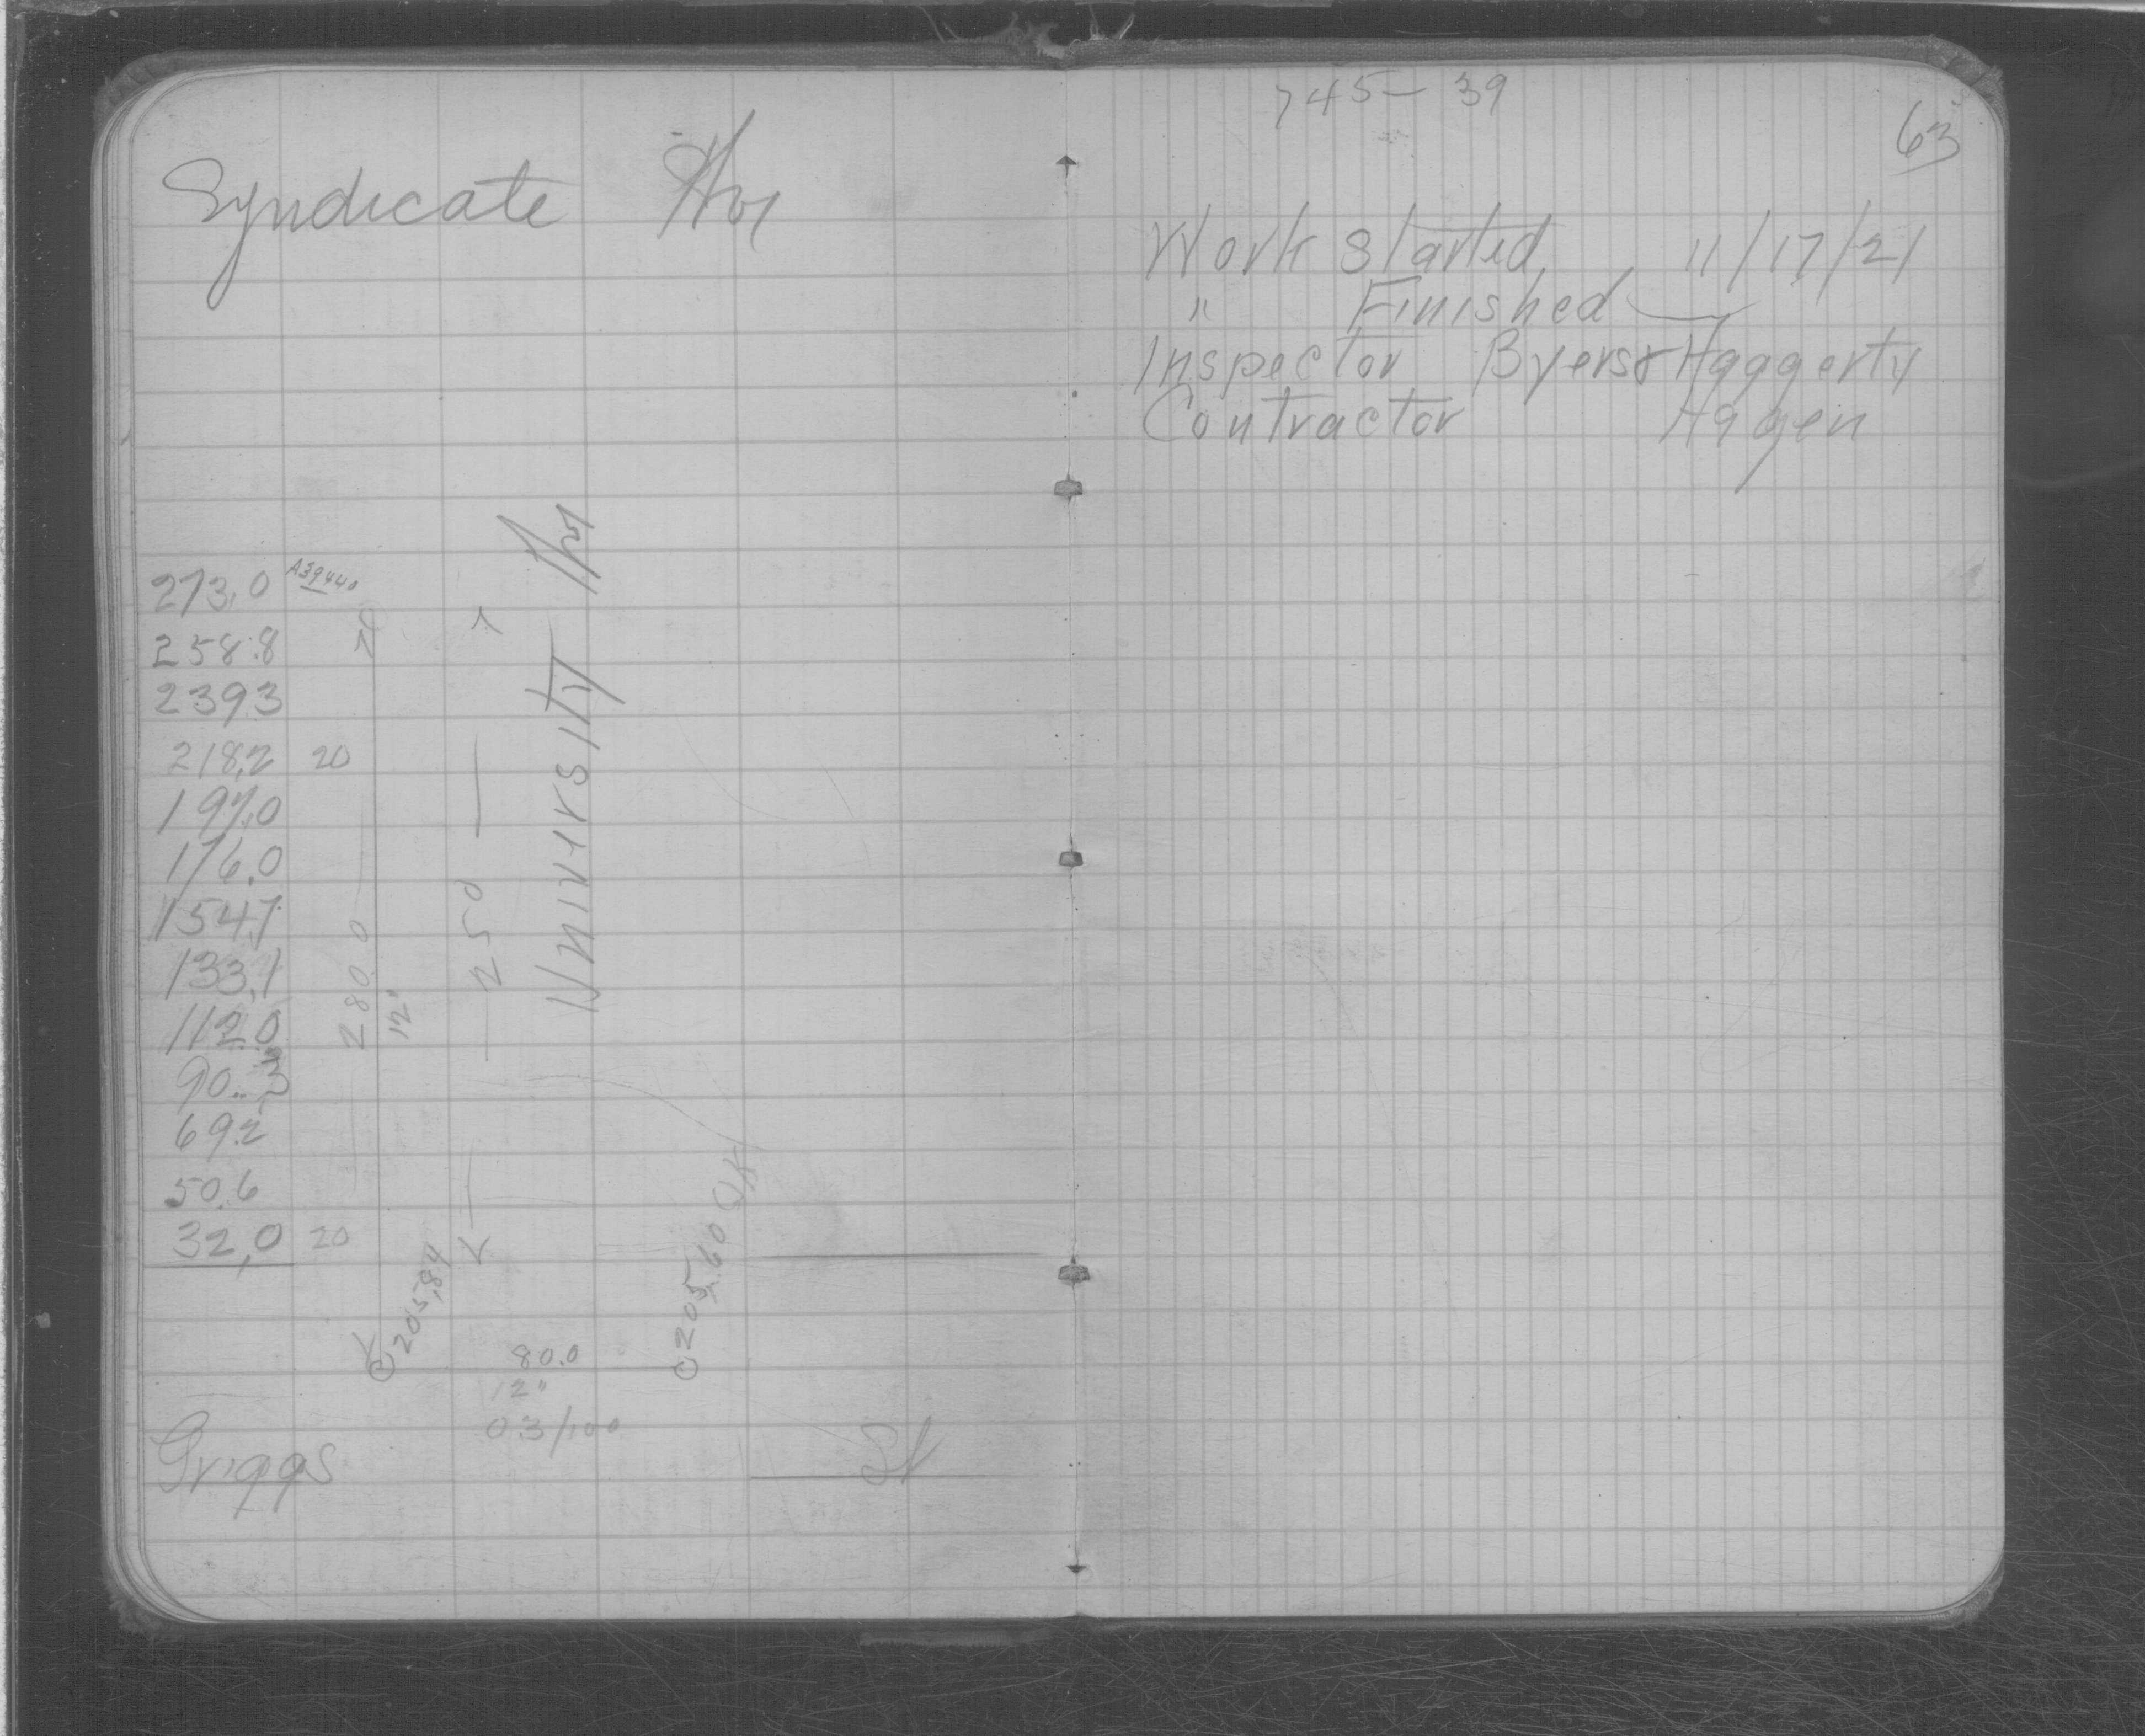 Syndicate Av
273.0 A39440
258.8
239.3
218.2 20
197.0
176.0
154.7
133.1
112.0
90.3
69.2
50.6
32.0 20
280.0
12"
250
University Av
205.84
205.60 OK
80.0
12"
0.3/100
Griggs St
745-39
63
Work Started 11/17/21
" Finished
Inspector Byers & Haggerty
Contractor Hagen